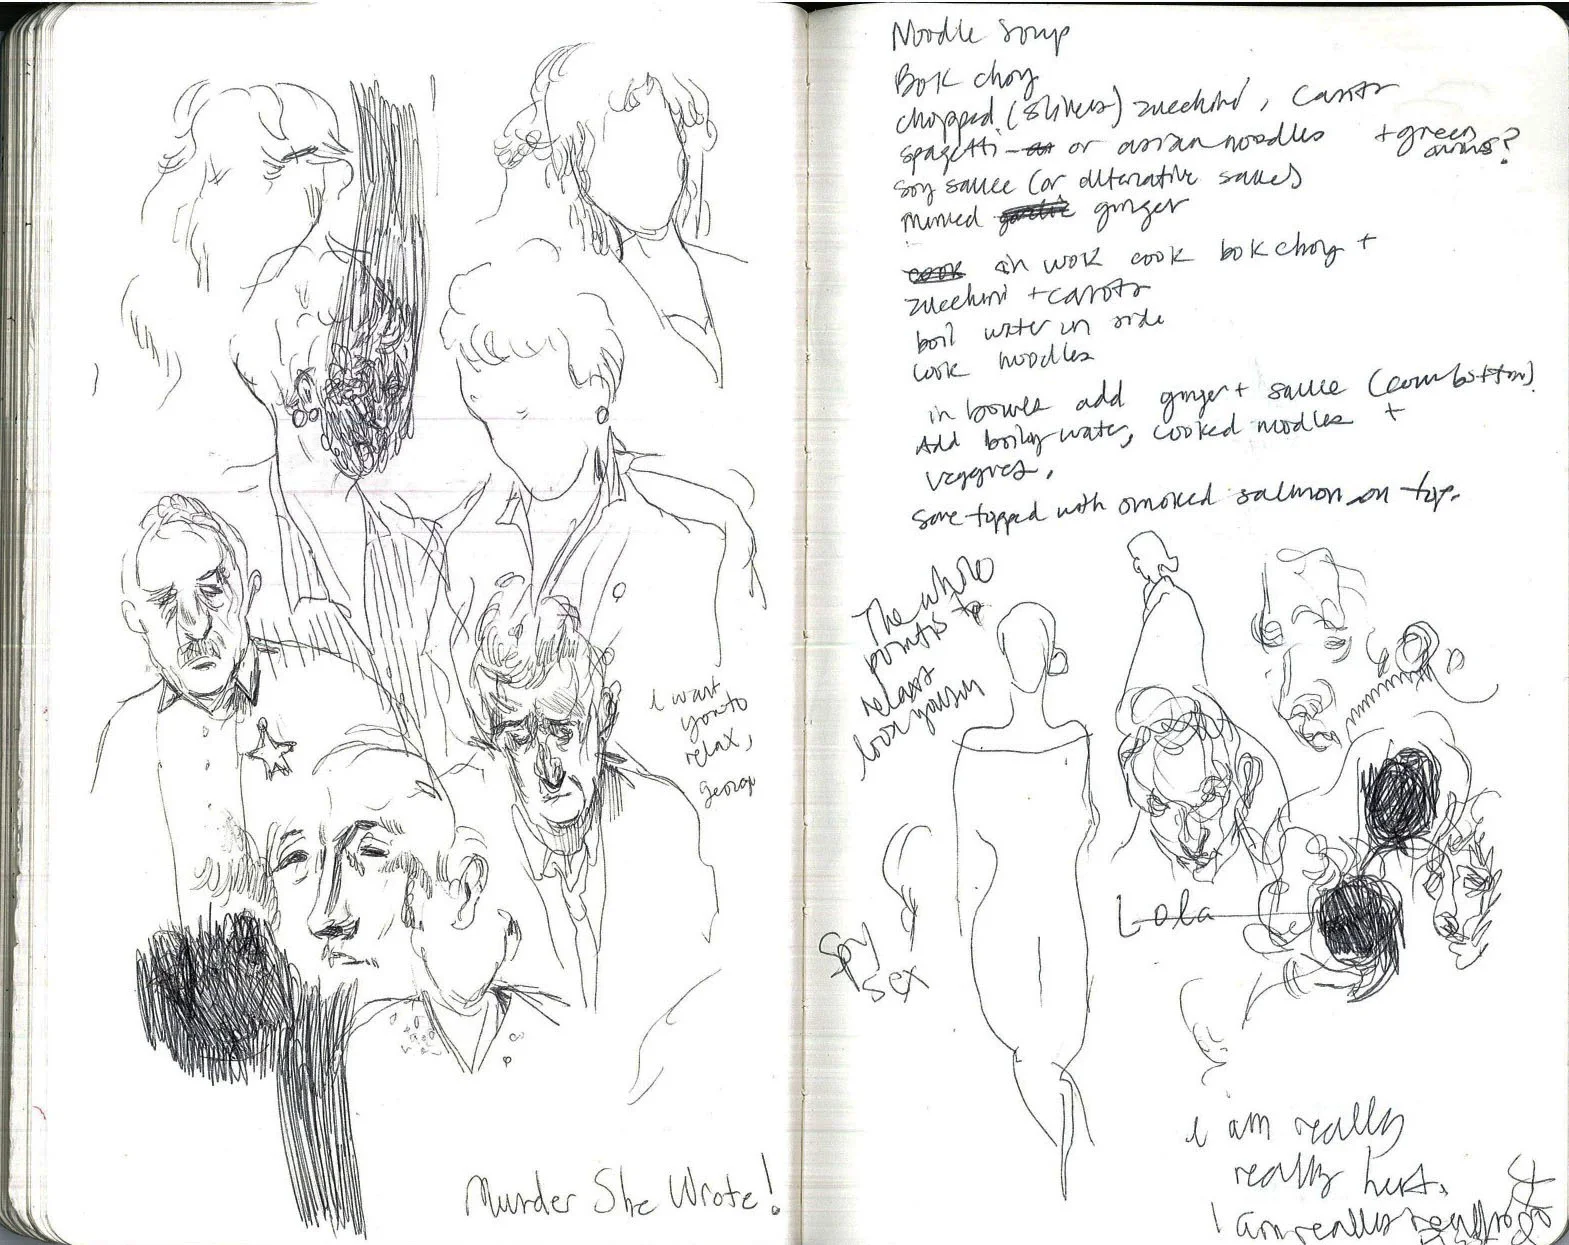 i want
you to
relax,
george
Murder She Wrote!
Noodle soup
Bok choy
chopped (slivers) zucchini, carots
spagetti - or or asian noodles + green
onions?
soy sauce (or alternative sauces)
minced garlic ginger
cook in wok cook bok choy +
zucchini + carots
boil water in side
cook noodles
in bowls add ginger + sauce
Add boiling water, cooked noodles +
veggies,
serve topped with smoked salmon on top.
The whole
point is to
relax
Spy
sex
Lola
i am really
really hurt.
I am really